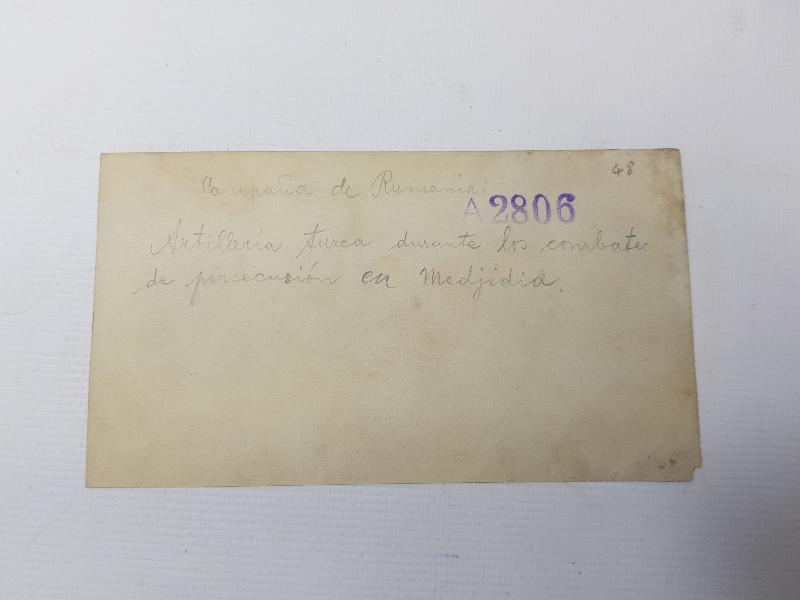 48
Campaña de Rumania:
A 2806
Artillería turca durante los combates
de persecusión en Medjidia.